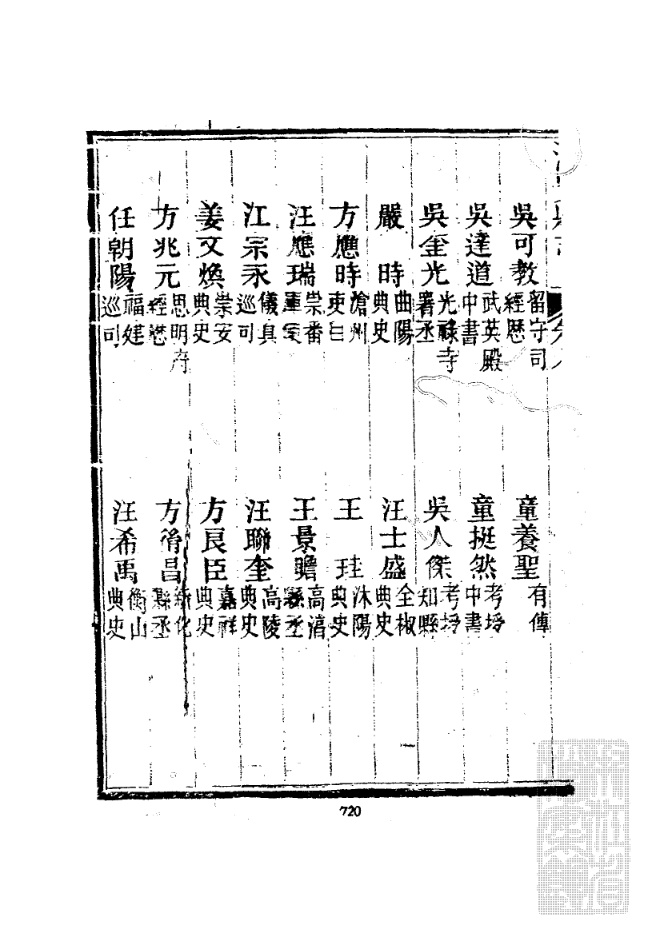 吳可教 留守司經歷
童養聖 有傳
吳達道 武英殿中書
童挺然 考授中書
吳金光 光祿寺署丞
吳人傑 考授知縣
嚴時 曲陽典史
汪士盛 全椒典史
方應時 滄州吏目
王珪 沭陽典史
汪應瑞 崇番
王景瞻 高淯縣丞
江宗永 儀真巡司
汪聯奎 高陵典史
姜文煥 崇安典史
方良臣 嘉祥典史
方兆元 思明府經歷
方脩昌 新化縣丞
任朝陽 福建巡司
汪希禹 衡山典史
720